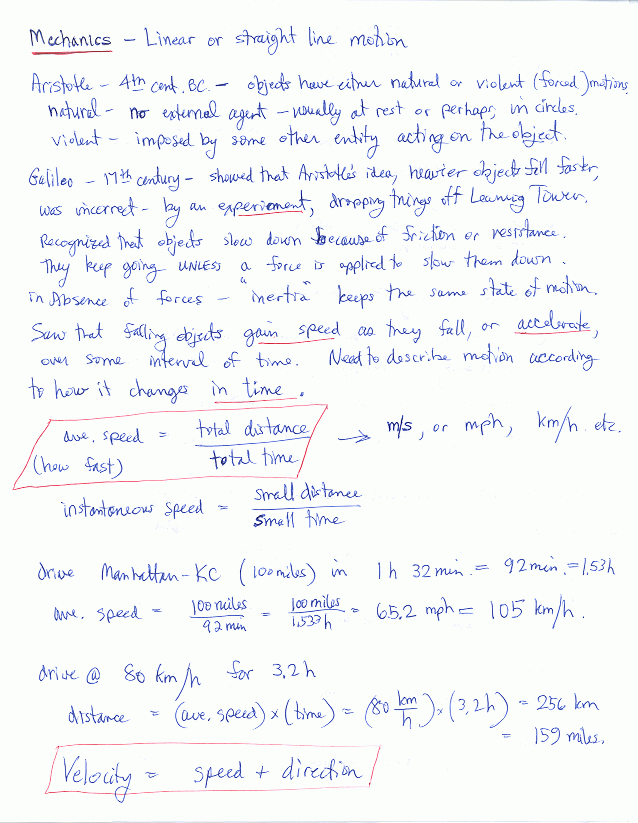 Mechanics – Linear or straight line motion
Aristotle – 4th cent. BC. – objects have either natural or violent (forced) motions
natural – no external agent – usually at rest or perhaps, in circles.
violent – imposed by some other entity acting on the object.
Galileo – 17th century – showed that Aristotle's idea, heavier objects fall faster,
was incorrect – by an experiement, dropping things off Leaning Tower.
Recognized that objects slow down because of friction or resistance.
They keep going UNLESS a force is applied to slow them down.
in Absence of forces – "inertia" keeps the same state of motion.
Saw that falling objects gain speed as they fall, or accelerate,
over some interval of time. Need to describe motion according
to how it changes in time.
ave. speed = total distance / total time → m/s, or mph, km/h. etc.
(how fast)
instantaneous speed = small distance / small time
drive Manhattan – KC (100 miles) in 1h 32 min. = 92 min. = 1.53h
ave. speed = 100 miles / 92 min = 100 miles / 1.533 h = 65.2 mph = 105 km/h.
drive @ 80 km/h for 3.2 h
distance = (ave. speed) × (time) = (80 km/h) × (3.2h) = 256 km
= 159 miles.
Velocity = speed + direction